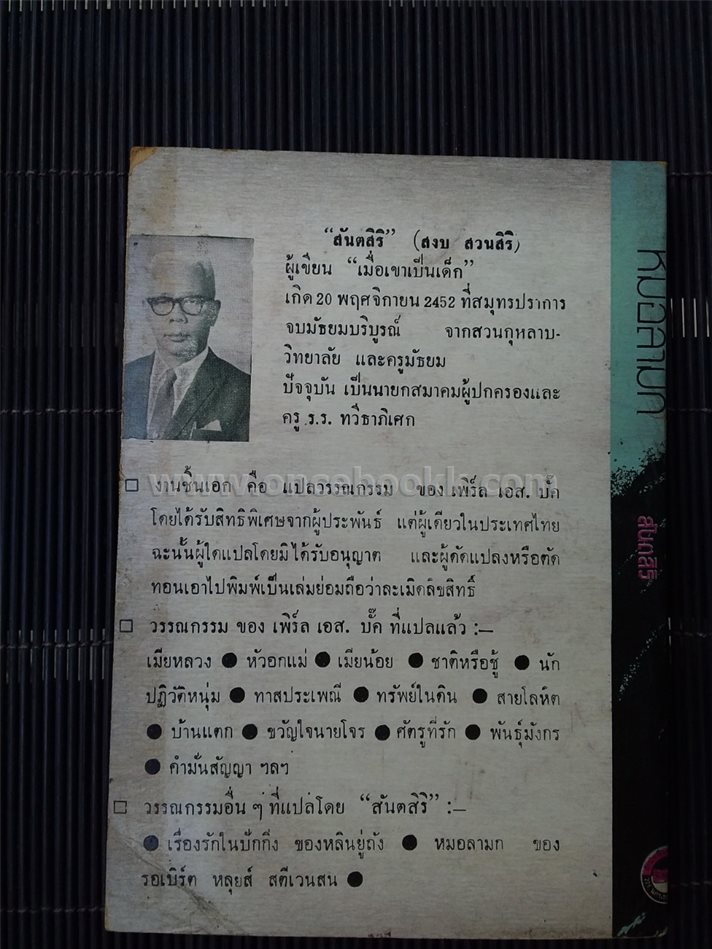 “สันตสิริ” (สงบ สวนสิริ)
ผู้เขียน “เมื่อเขาเป็นเด็ก”
เกิด 20 พฤศจิกายน 2452 ที่สมุทรปราการ
จบมัธยมบริบูรณ์ จากสวนกุหลาบ-
วิทยาลัย และครูมัธยม
ปัจจุบัน เป็นนายกสมาคมผู้ปกครองและ
ครู ร.ร. ทวีธาภิเศก
□ งานชิ้นเอก คือ แปลวรรณกรรม ของ เพิร์ล เอส. บั๊ค
โดยได้รับสิทธิพิเศษจากผู้ประพันธ์ แต่ผู้เดียวในประเทศไทย
ฉะนั้นผู้ใดแปลโดยมิได้รับอนุญาต และผู้ดัดแปลงหรือตัด
ทอนเอาไปพิมพ์เป็นเล่มย่อมถือว่าละเมิดลิขสิทธิ์
□ วรรณกรรม ของ เพิร์ล เอส. บั๊ค ที่แปลแล้ว :—
เมียหลวง ● หัวอกแม่ ● เมียน้อย ● ชาติหรือชู้ ● นัก
ปฏิวัติหนุ่ม ● ทาสประเพณี ● ทรัพย์ในดิน ● สายโลหิต
● บ้านแตก ● ขวัญใจนายโจร ● ศัตรูที่รัก ● พันธุ์มังกร
● คำมั่นสัญญา ฯลฯ
□ วรรณกรรมอื่น ๆ ที่แปลโดย “สันตสิริ” :—
● เรื่องรักในปักกิ่ง ของหลินยู่ถัง ● หมอลามก ของ
รอเบิร์ต หลุยส์ สตีเวนสน ●
หมอลามก
สันตสิริ